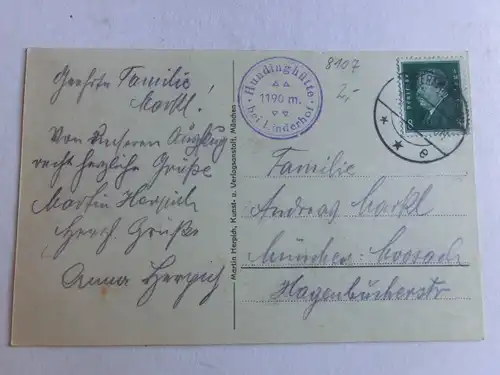 Geehrte Familie
Markl!
Von unserem Ausflug
recht herzliche Grüße
Martin Herpich
Herzl. Grüße
Anna Herpich
Martin Herpich, Kunst- u. Verlagsanstalt, München
Hundinghütte
1190 m.
bei Linderhof
8107
2,-
8
Familie
Andreas Markl
München-Moosach
Hagenbucherstr